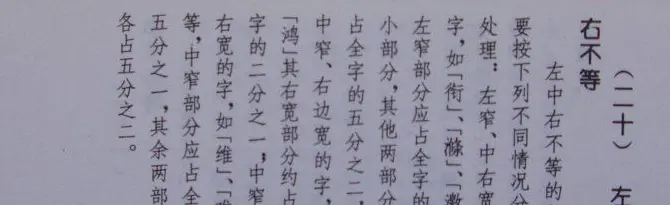 （二十）　左
右不等
左中右不等的
要按下列不同情况分
处理：左窄、中右宽
字，如「衔」、「滌」、「激
左窄部分应占全字的
小部分，其他两部分
占全字的五分之二，
中窄、右边宽的字，
「鸿」其右宽部分约占
字的二分之一；中窄
右宽的字，如「维」、「
等，中窄部分应占全
五分之一，其余两部
各占五分之二。